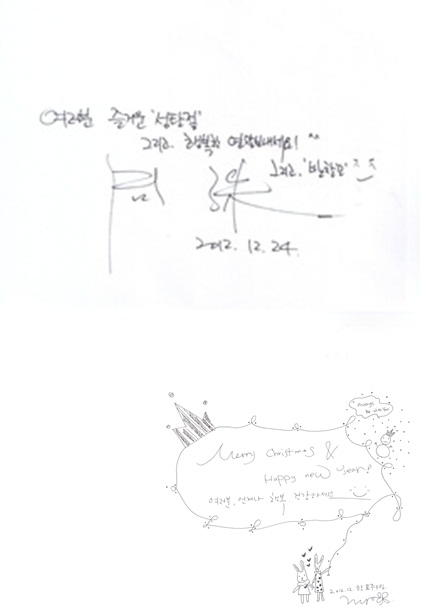 여러분 즐거운 '성탄절'
그리고, 행복한 연말보내세요! ^^
그리고, '반창꼬' ㅈㅈ
2012. 12. 24.
always
Be with You
Merry Christmas &
Happy new Year!
여러분, 언제나 행복 건강하세요
2012. 12.